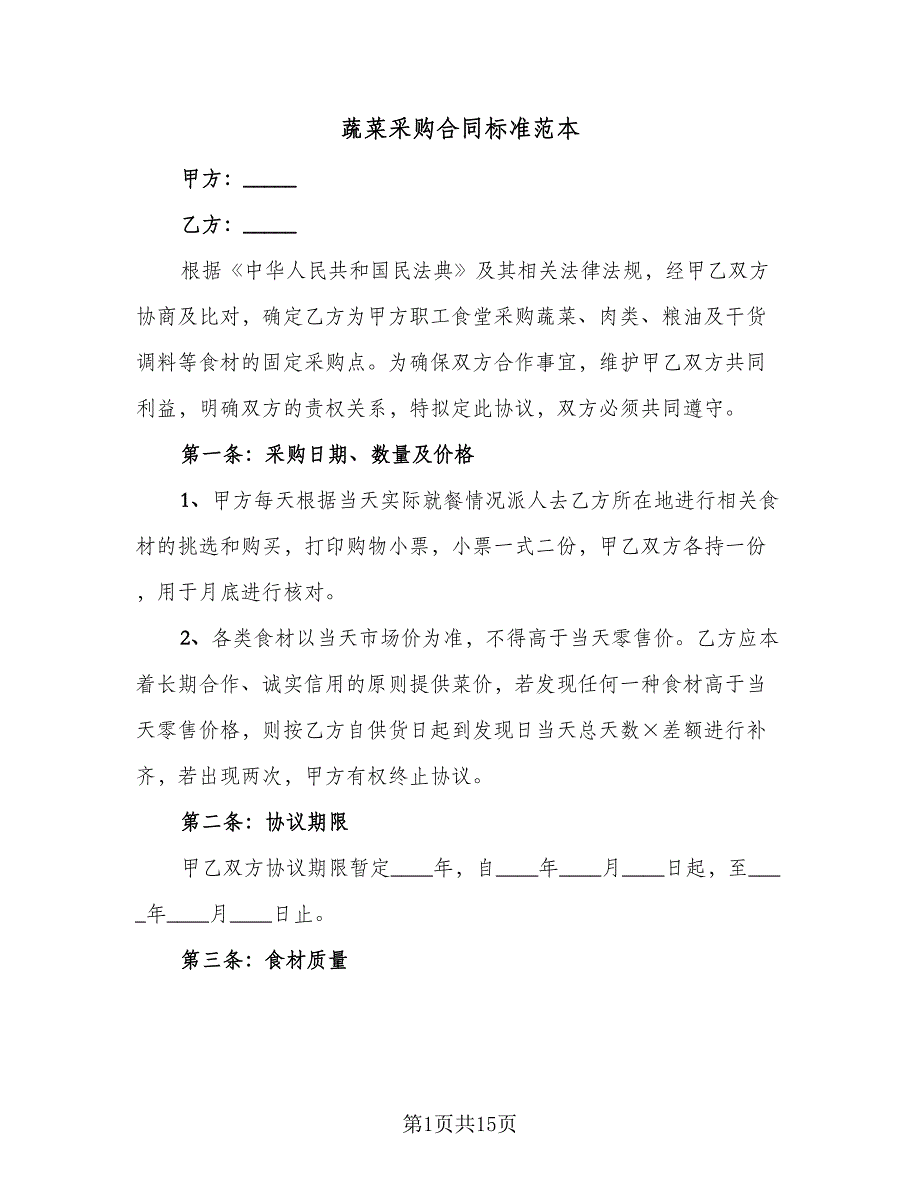 蔬菜采购合同标准范本
甲方：_____
乙方：_____
根据《中华人民共和国民法典》及其相关法律法规，经甲乙双方
协商及比对，确定乙方为甲方职工食堂采购蔬菜、肉类、粮油及干货
调料等食材的固定采购点。为确保双方合作事宜，维护甲乙双方共同
利益，明确双方的责权关系，特拟定此协议，双方必须共同遵守。
第一条：采购日期、数量及价格
1、甲方每天根据当天实际就餐情况派人去乙方所在地进行相关食
材的挑选和购买，打印购物小票，小票一式二份，甲乙双方各持一份
，用于月底进行核对。
2、各类食材以当天市场价为准，不得高于当天零售价。乙方应本
着长期合作、诚实信用的原则提供菜价，若发现任何一种食材高于当
天零售价格，则按乙方自供货日起到发现日当天总天数×差额进行补
齐，若出现两次，甲方有权终止协议。
第二条：协议期限
甲乙双方协议期限暂定____年，自____年____月____日起，至___
_年____月____日止。
第三条：食材质量
第1页共15页